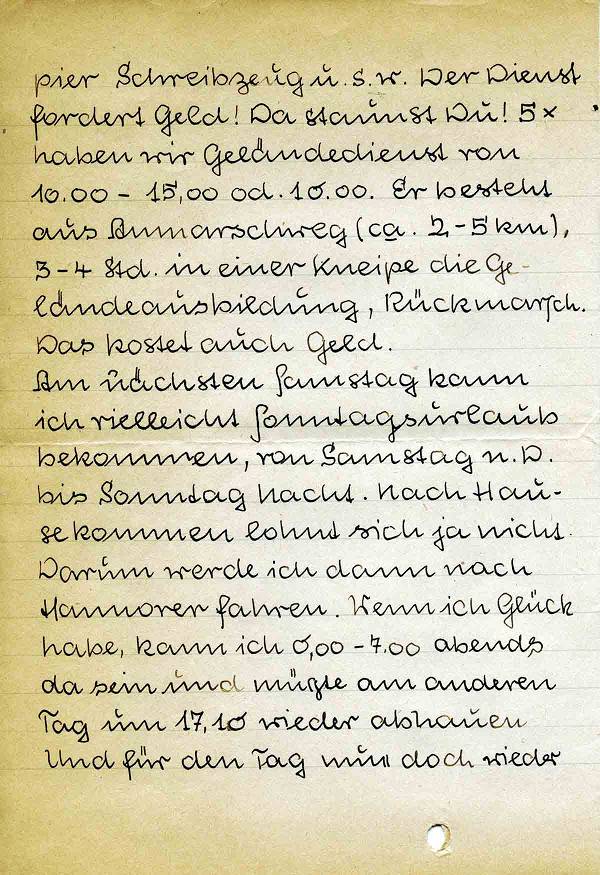 pier Schreibzeug u. s. w. Der Dienst
fordert Geld! Da staunst Du! 5 x
haben wir Geländedienst von
10.00 - 15,00 od. 16.00. Er besteht
aus Anmarschweg (ca. 2,-5 km),
3-4 Std. in einer Kneipe die Ge-
ländeausbildung, Rückmarsch.
Das kostet auch Geld.
Am nächsten Samstag kann
ich vielleicht Sonntagsurlaub
bekommen, von Samstag n. D.
bis Sonntag Nacht. Nach Hau-
se kommen lohnt sich ja nicht.
Darum werde ich dann nach
Hannover fahren. Wenn ich Glück
habe, kann ich 6,00 - 7.00 abends
da sein und müßte am anderen
Tag um 17,10 wieder abhauen
Und für den Tag nun doch wieder